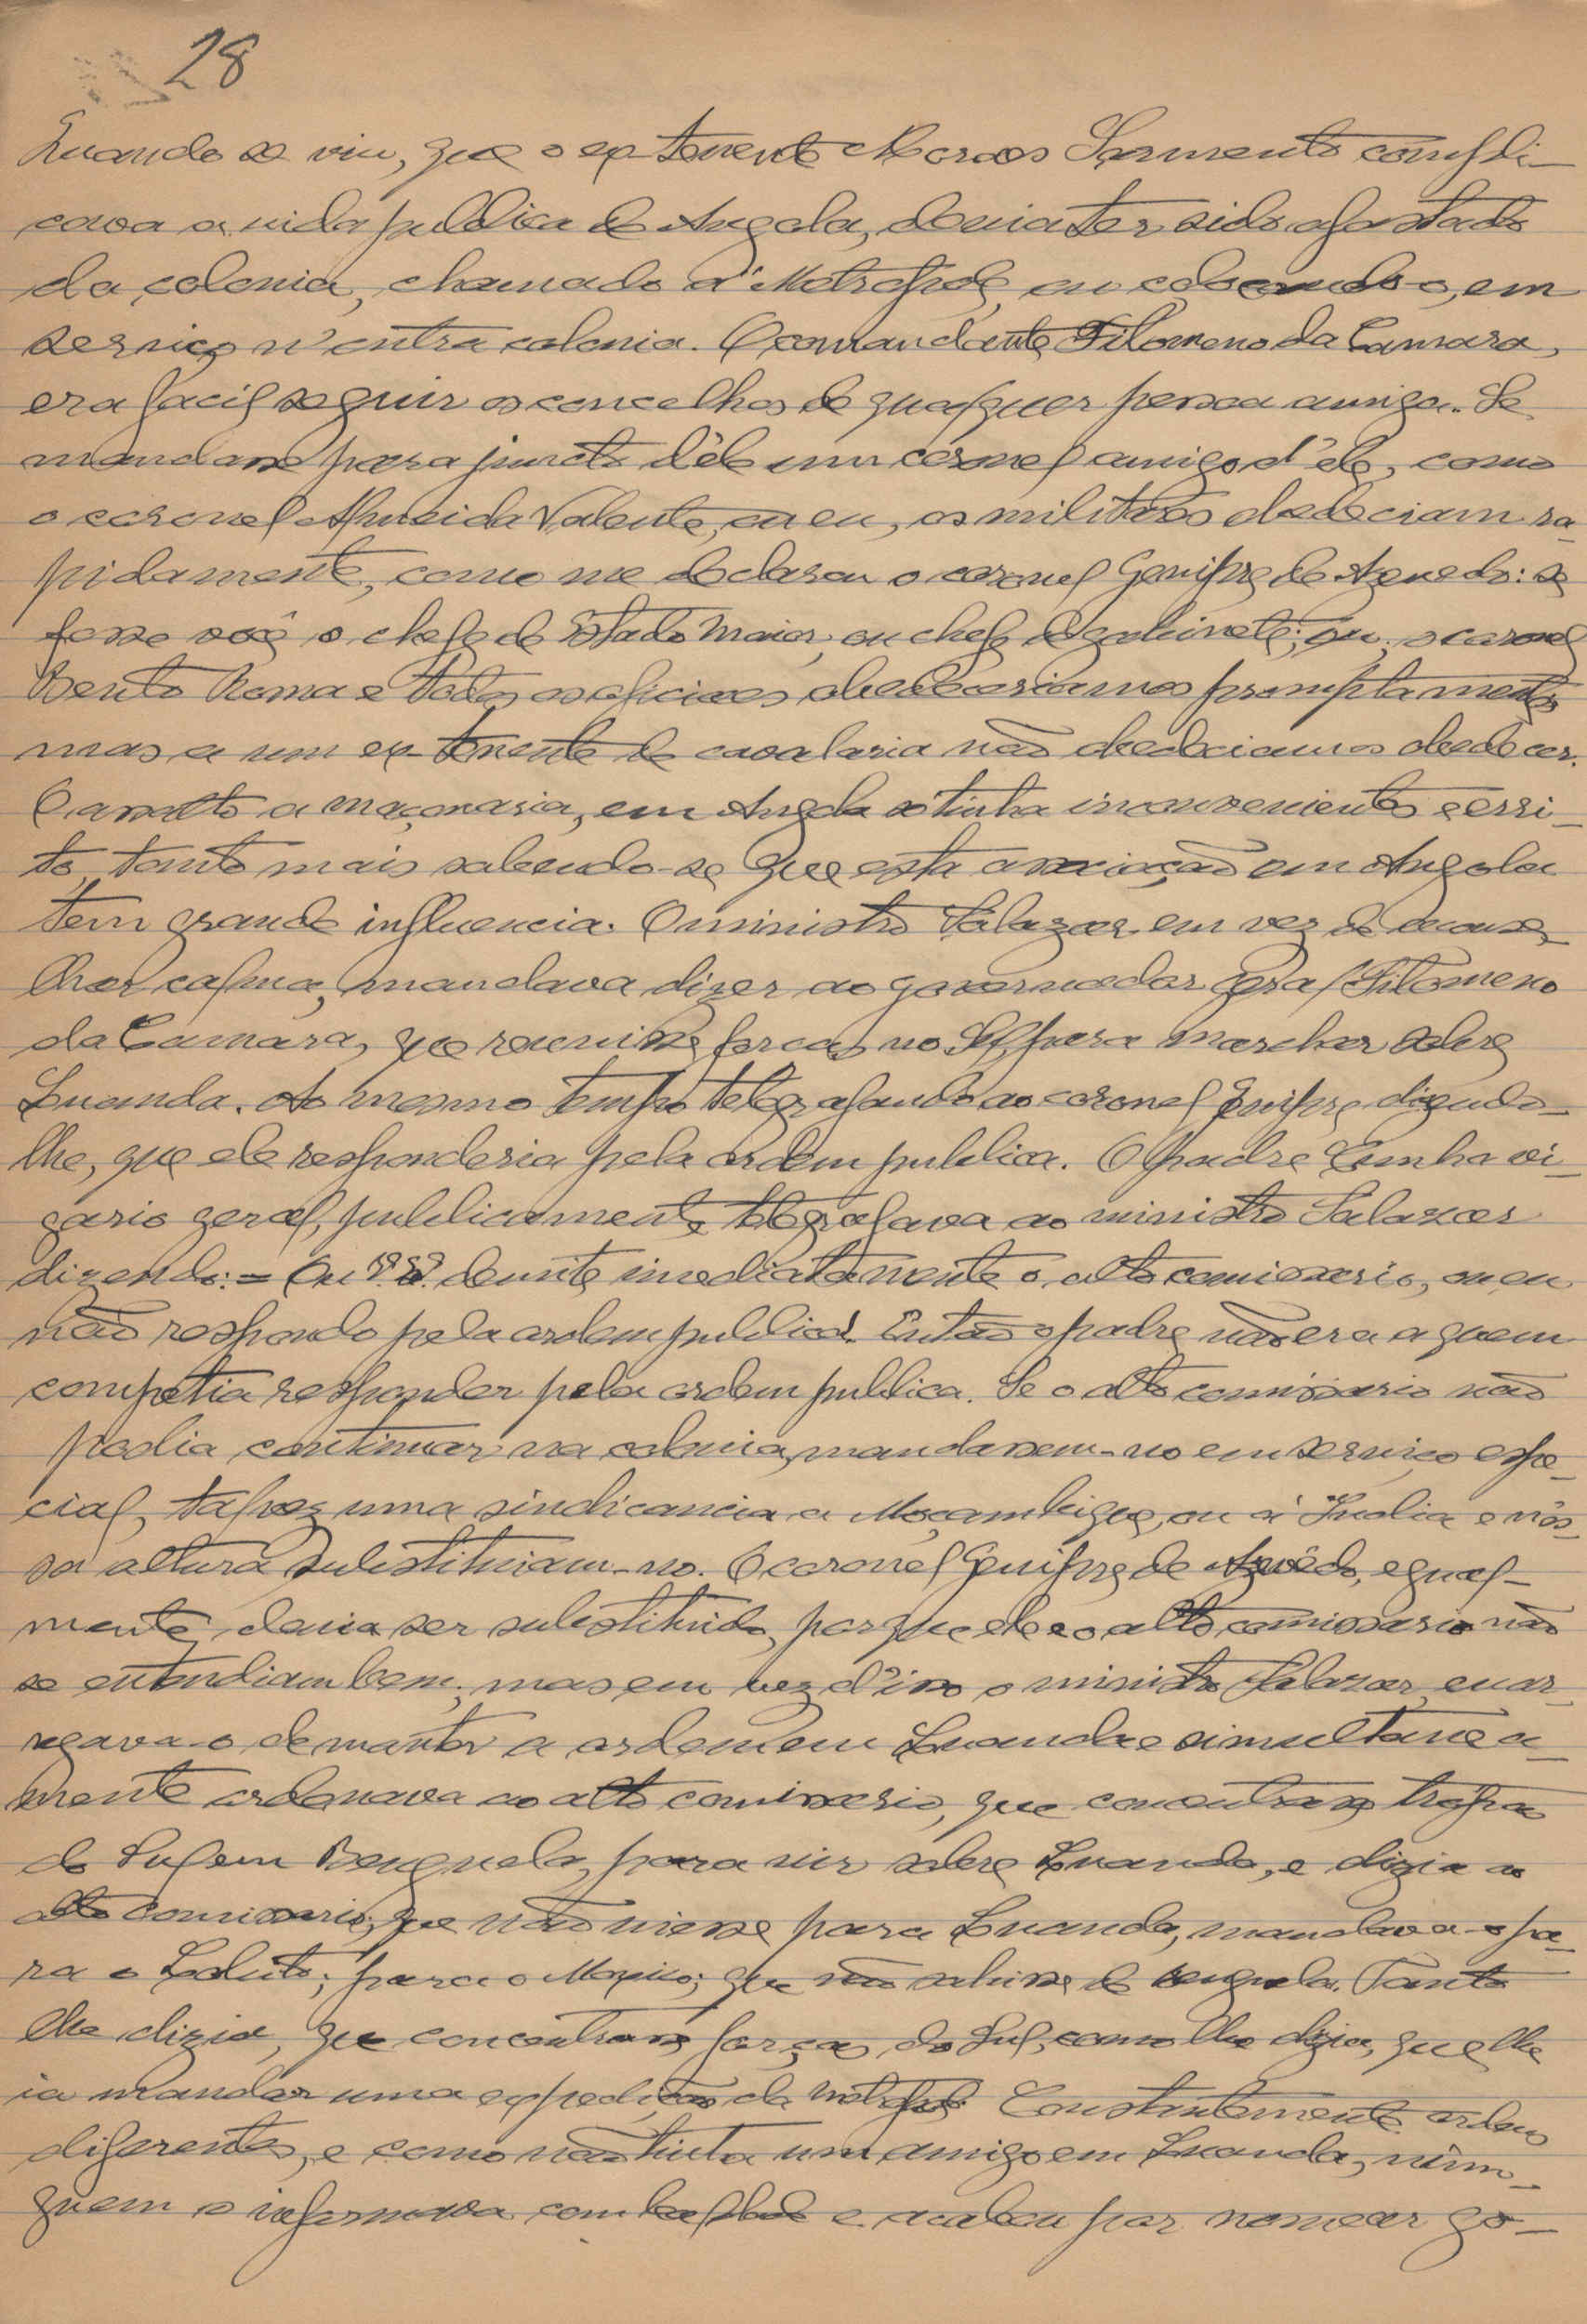 28
Quando se viu, que o ex tenente Moraes Sarmento compli-
cava a vida publica de Angola, devia ter sido afastado
da colonia, chamado á Metropole, ou colocando-o, em
serviço n'outra colonia. O comandante Filomeno da Camara,
era facil seguir os concelhos de qualquer pessoa amiga. Se
mandasse para juncto d'ele um coronel amigo d'ele, como
o coronel Almeida Valente, ou eu, os militares obedeciam ra-
pidamente, como me declarou o coronel Genipro de Azevedo: se
fosse você o chefe do Estado Maior, ou chefe de gabinete; eu, o coronel
Bento Roma e todos os oficiaes obedeceriamos promptamente
mas a um ex-tenente de cavalaria não obedeciamos obedecer.
O assalto a maçonaria, em Angola só tinha inconvenientes e erri-
to, tanto mais sabendo-se que esta associação em Angola
tem grande influencia. O ministro Salazar em vez de aconse-
lhar calma, mandava dizer ao governador geral Filomeno
da Camara, que reunisse forcas no Sul, para marchar sobre
Luanda. Ao mesmo tempo telegrafando ao coronel Genipro dizendo-
lhe, que ele responderia pela ordem publica. O padre Cunha vi-
gario geral, publicamente telegrafava ao ministro Salazar
dizendo: = Ou V. Ex.ª demite imediatamente o alto comissario, ou eu
não respondo pela ordem publica! Então o padre não era a quem
competia responder pela ordem publica. Se o alto comissario não
podia continuar na colonia, mandassem-no em serviço espe-
cial, talvez uma sindicancia a Moçambique, ou á India e nes-
sa altura substituiam-no. O coronel Genipro de Azevêdo, egual-
mente, devia ser substituido, porque ele e o alto comissario não
se entendiam bem; mas em vez d'isso o ministro Salazar, encar-
regava-o de manter a ordem em Luanda e simultanea-
mente ordenava ao alto comissario, que concentrasse tropas
do Sul em Benguela, para vir sobre Luanda, e dizia ao
alto comissario, que não viesse para Luanda, mandava-o pa-
ra o Lobito; para o Moxico; que não sahisse de Benguela. Tanto
lhe dizia, que concentrasse forças do Sul, como lhe dizia, que lhe
ia mandar uma expedição da Metropole. Constantemente ordens
diferentes, e como não tinha um amigo em Luanda, nin-
guem o informava com lealdade e acabou por nomear go-